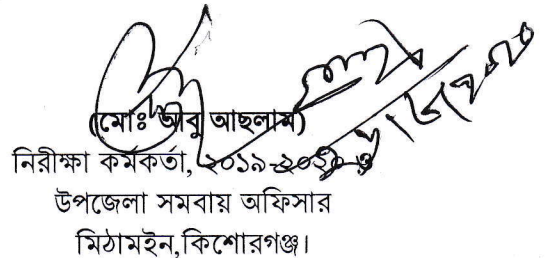 (মোঃ আবু আছলাম)
নিরীক্ষা কর্মকর্তা, ২০১৯-২০২০
উপজেলা সমবায় অফিসার
মিঠামইন,কিশোরগঞ্জ।